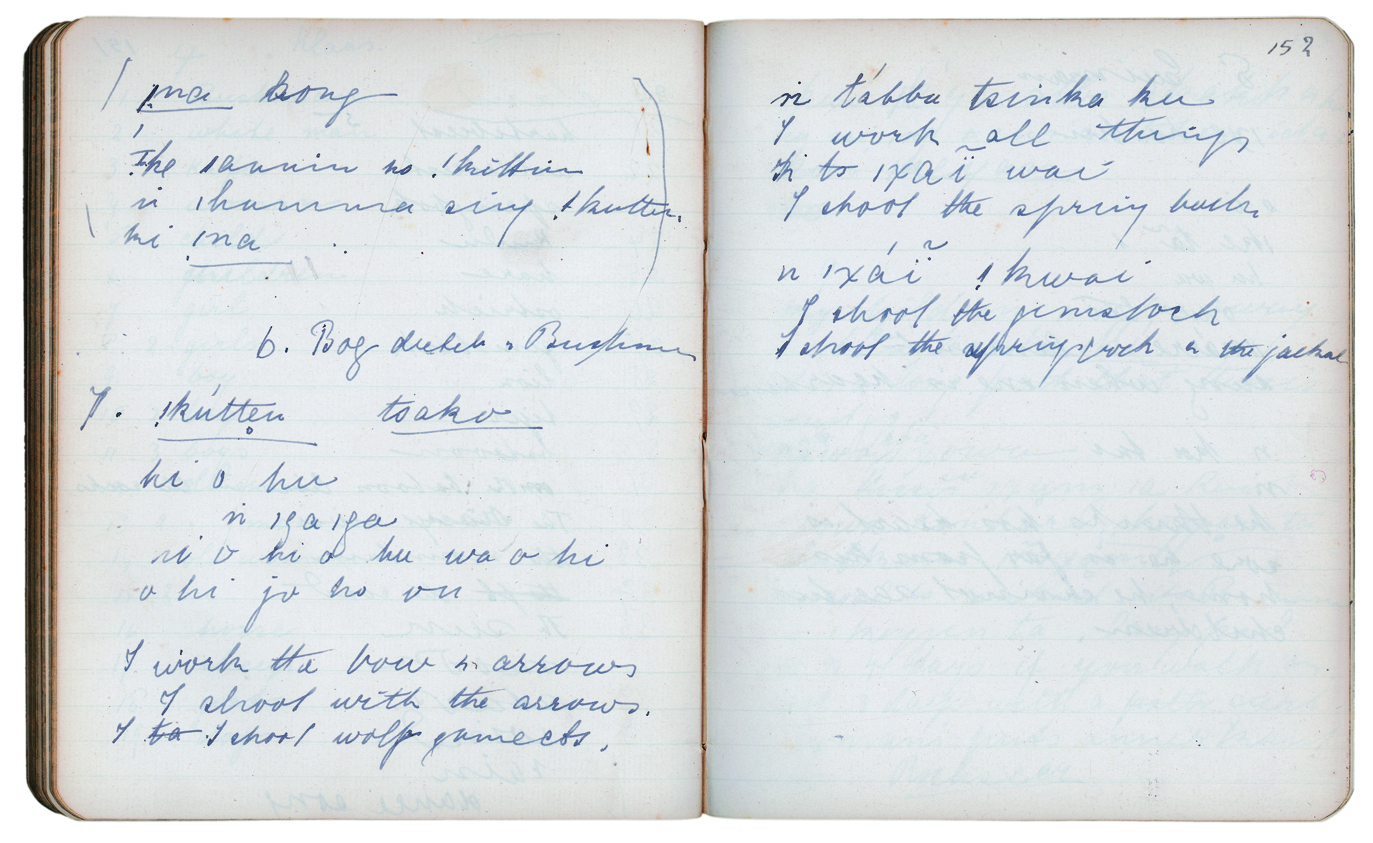 !na song
!
!ke ǀannin ns !kuttin
n ǀhamma sing !kutten
ki !na
6. Bog dutch & Bushman
7. !kútten tsako
hi o hu
n ǀgaǀga
ni o hi o hu wa o hi
o hi jo ho ou
I work the bow & arrows
I shoot with the arrows.
I to I shoot wolf gamects.
152
n tábba tsinka ku
I work all things
ǀxaĩ wai
I shoot the spring buck.
n ǀxáĩ !kwai
I shoot the gemsbock
I shoot the springbock & the jackal